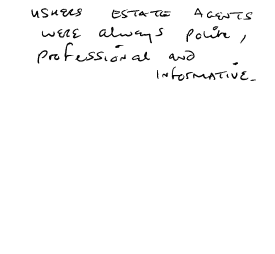 USHERS ESTATE AGENTS
WERE always polite,
professional and
INFORMATIVE.